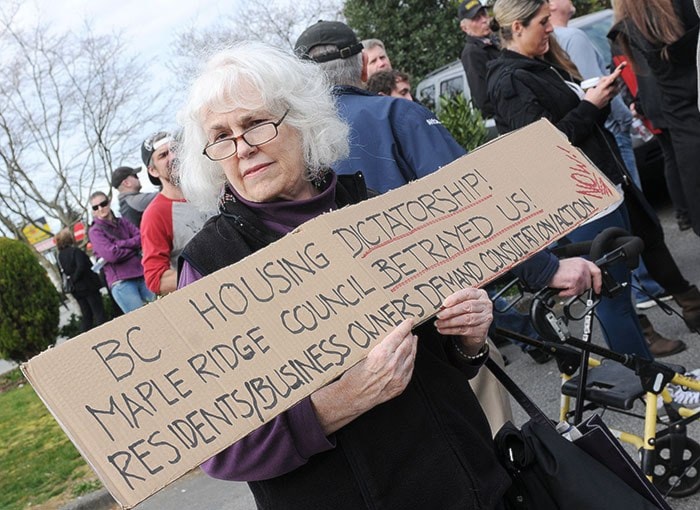 BC HOUSING DICTATORSHIP!
MAPLE RIDGE COUNCIL BETRAYED US!
RESIDENTS/BUSINESS OWNERS DEMAND CONSULTATION/ACTION NOW!